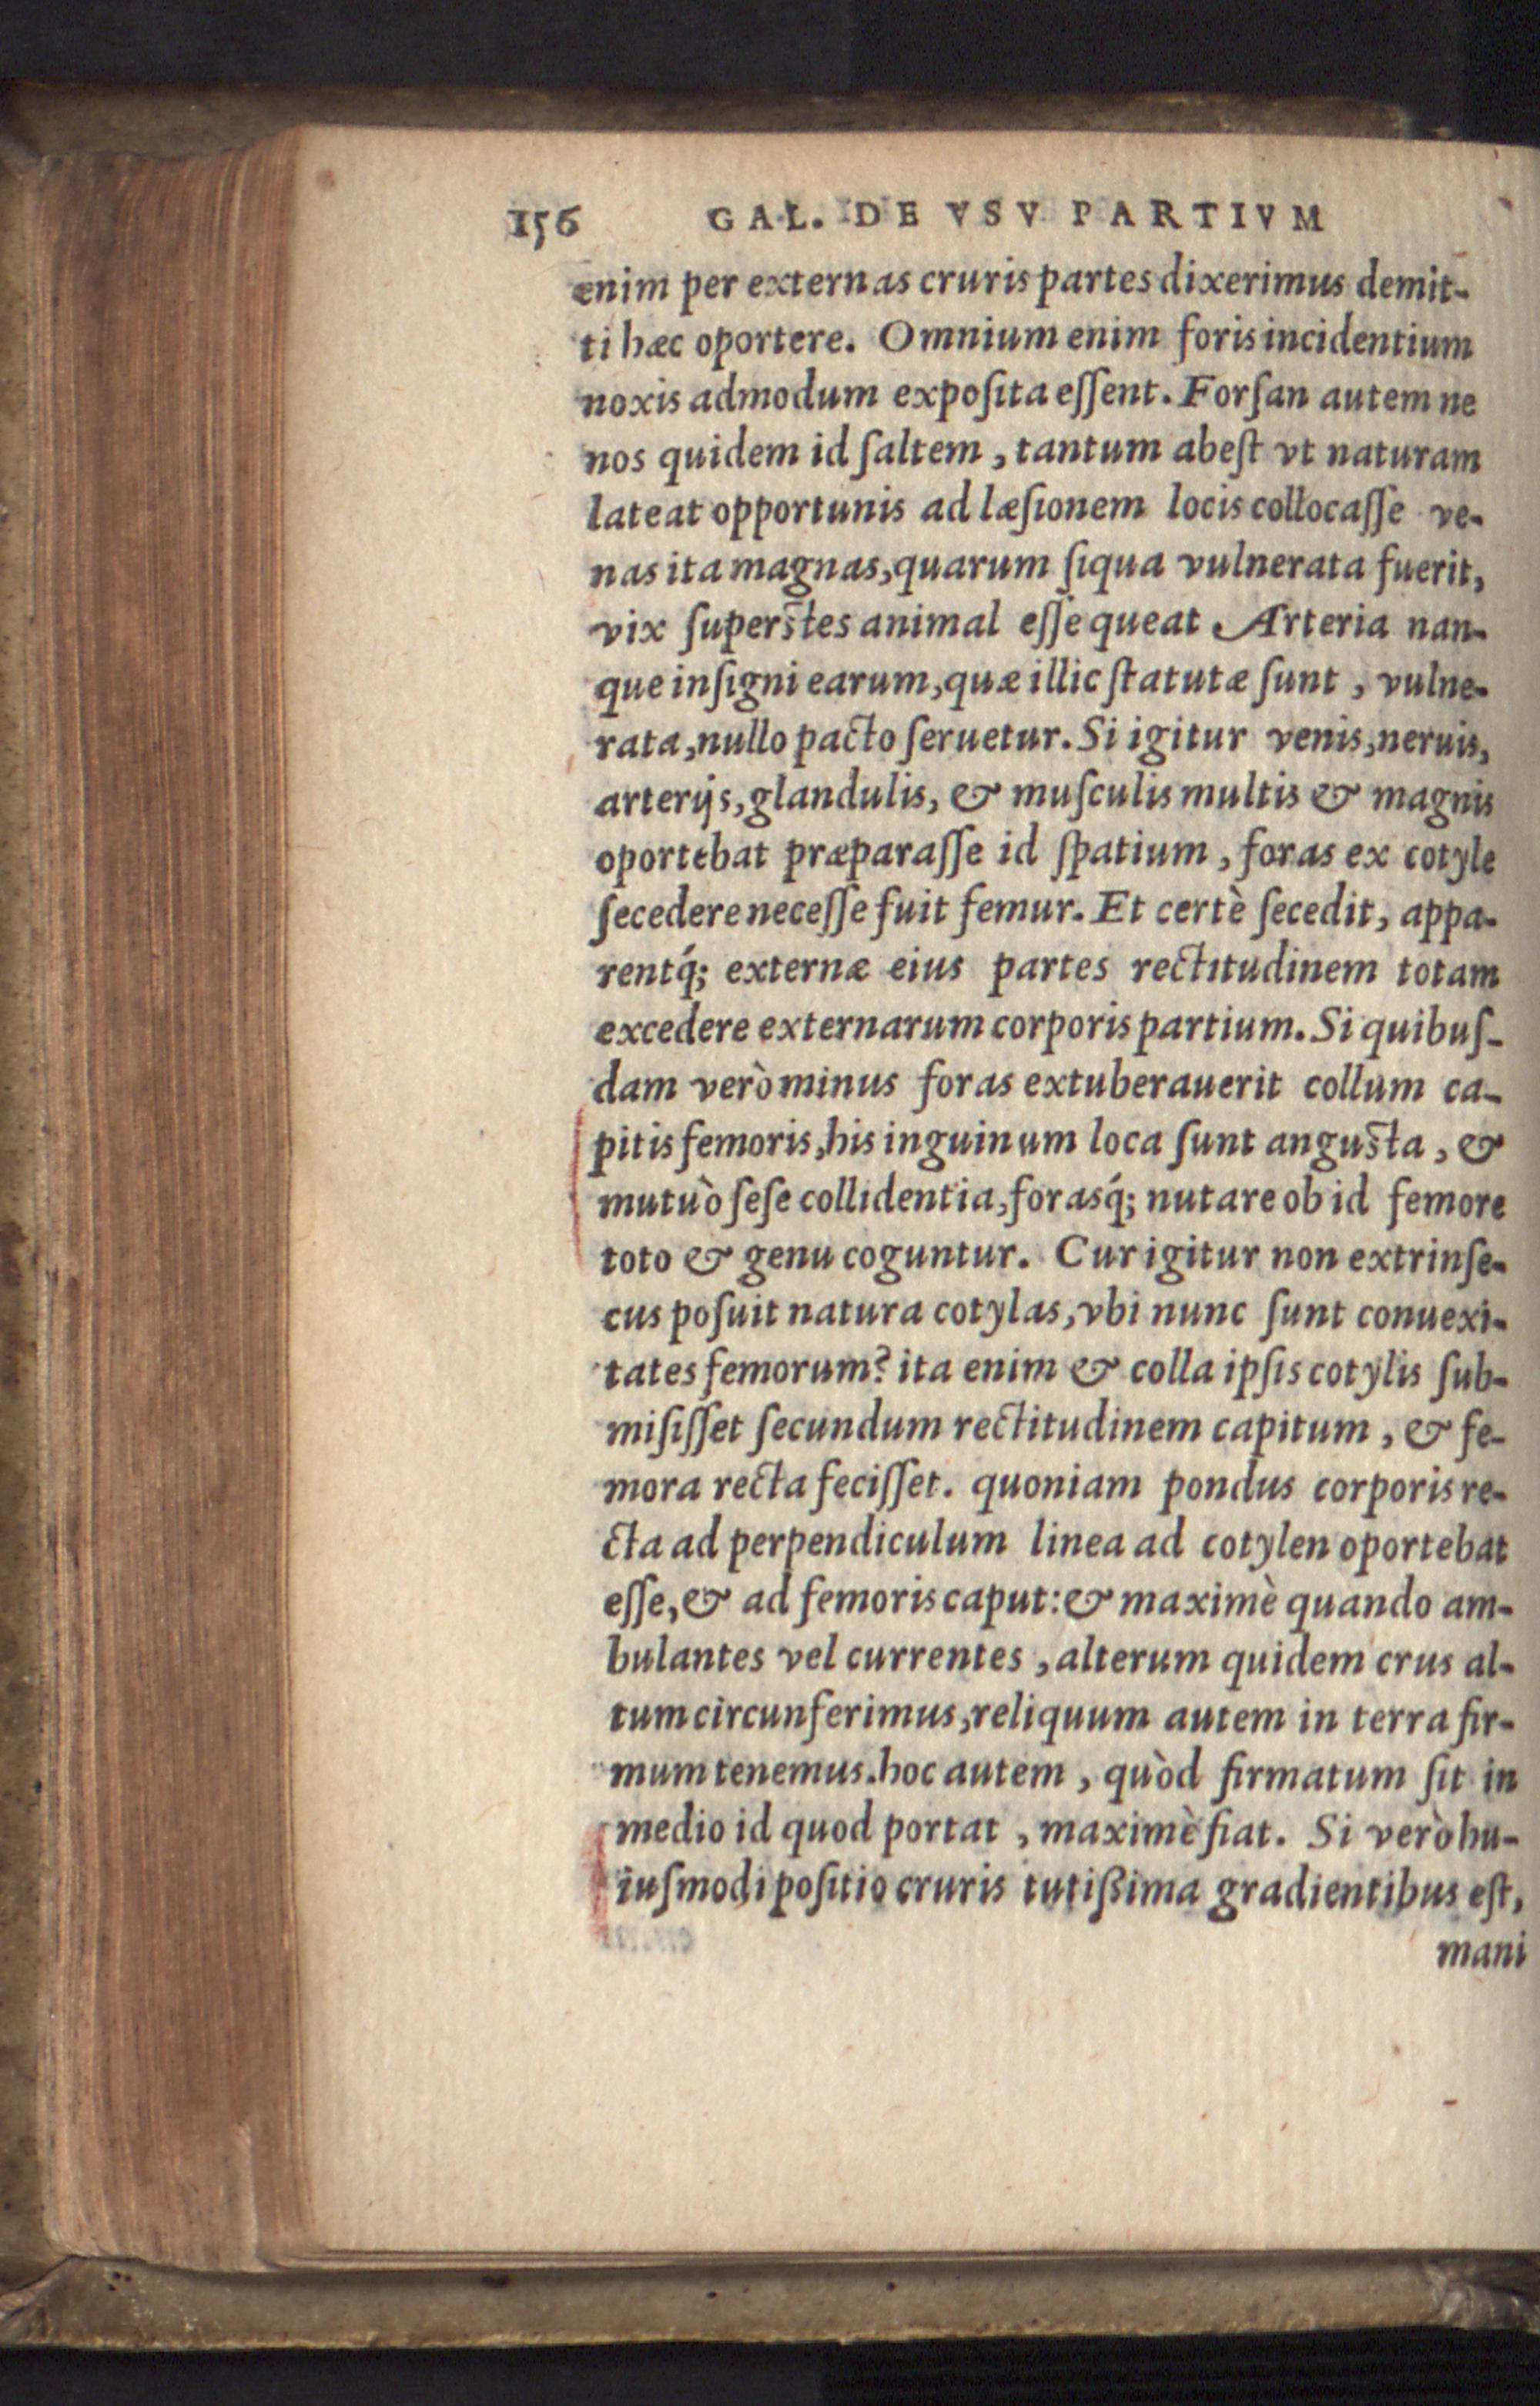 156 GAL. DE VSV PARTIVM
enim per externas cruris partes dixerimus demit-
ti hæc oportere. Omnium enim foris incidentium
noxis admodum expoſita eſſent. Forſan autem ne
nos quidem id ſaltem, tantum abeſt vt naturam
lateat opportunis ad læſionem locis collocaſſe ve-
nas ita magnas, quarum ſiqua vulnerata fuerit,
vix ſuperſtes animal eſſe queat Arteria nan-
que inſigni earum, quæ illic ſtatutæ ſunt, vulne-
rata, nullo pacto ſeruetur. Si igitur venis, neruis,
arterijs, glandulis, & muſculis multis & magnis
oportebat præparaſſe id ſpatium, foras ex cotyle
ſecedere neceſſe fuit femur. Et certè ſecedit, appa-
rentq́; externæ eius partes rectitudinem totam
excedere externarum corporis partium. Si quibuſ-
dam verò minus foras extuberauerit collum ca-
pitis femoris, his inguinum loca ſunt anguſta, &
mutuò ſeſe collidentia, forasq́; nutare ob id femore
toto & genu coguntur. Cur igitur non extrinſe-
cus poſuit natura cotylas, vbi nunc ſunt conuexi-
tates femorum? ita enim & colla ipſis cotylis ſub-
miſiſſet ſecundum rectitudinem capitum, & fe-
mora recta feciſſet. quoniam pondus corporis re-
cta ad perpendiculum linea ad cotylen oportebat
eſſe, & ad femoris caput: & maximè quando am-
bulantes vel currentes, alterum quidem crus al-
tum circunferimus, reliquum autem in terra fir-
mum tenemus. hoc autem, quòd firmatum ſit in
medio id quod portat, maximè fiat. Si verò hu-
iuſmodi poſitio cruris tutiſsima gradientibus eſt,
mani